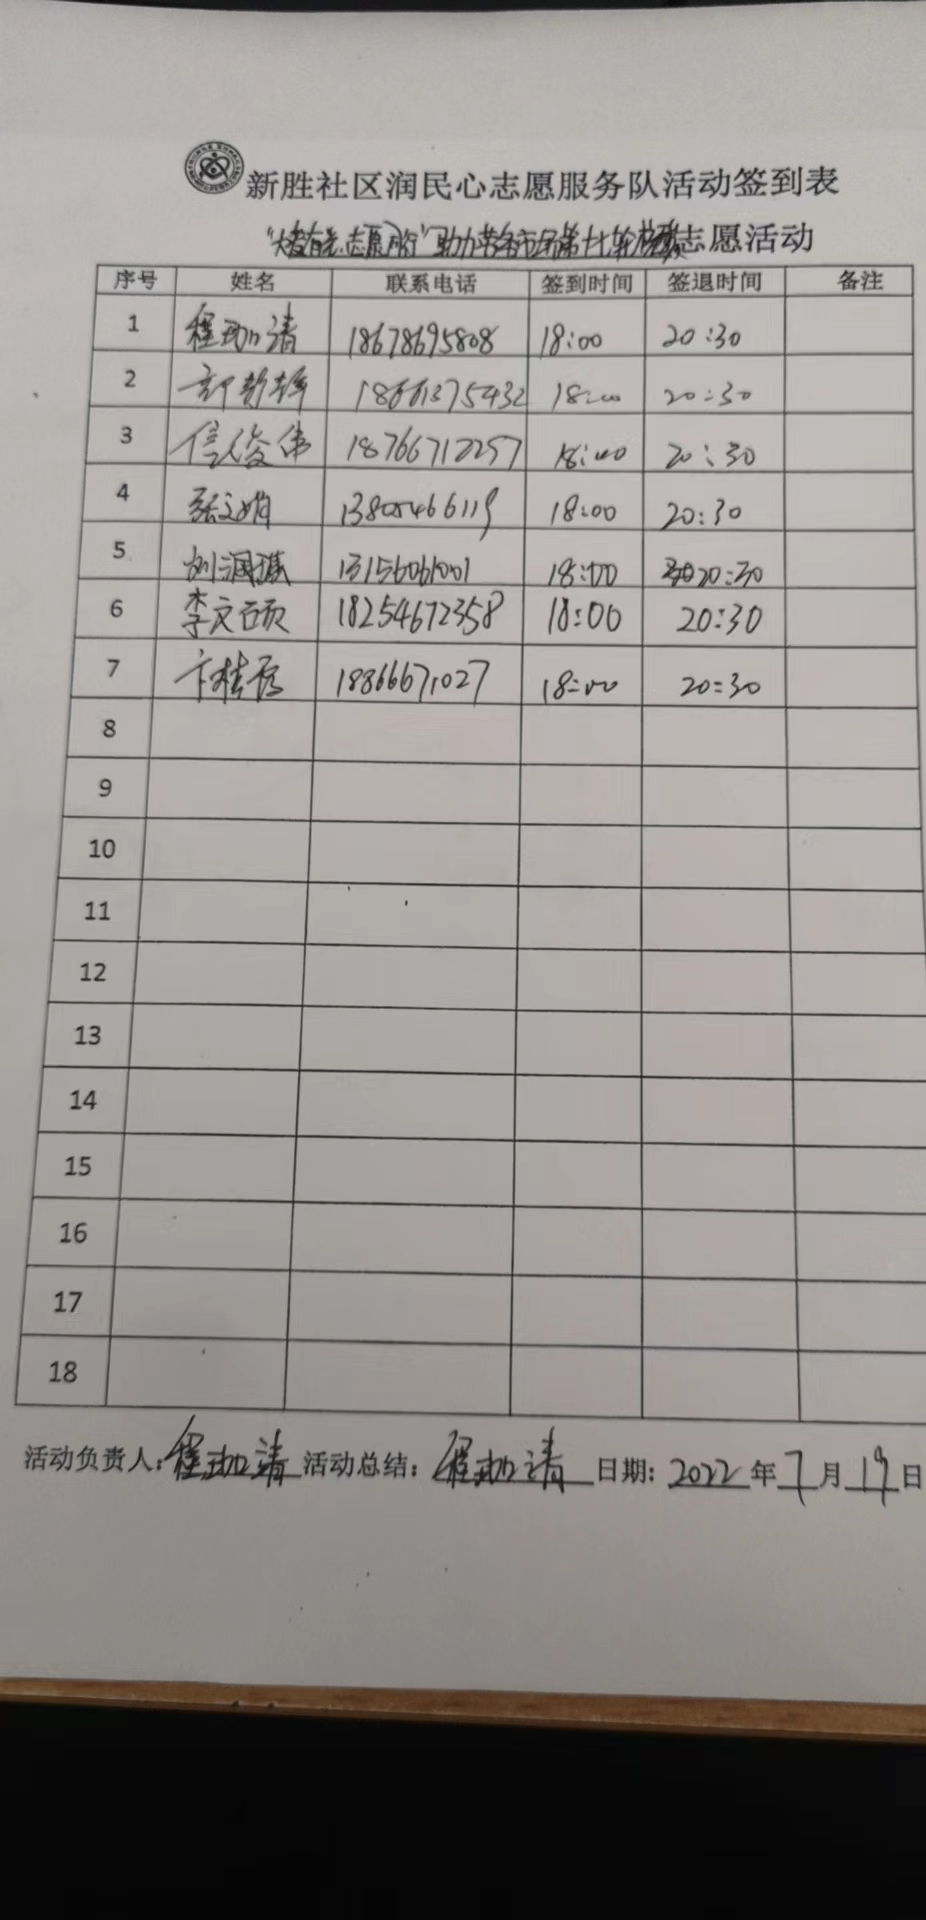 新胜社区润民心志愿服务队活动签到表
志愿活动
序号 姓名 联系电话 签到时间 签退时间 备注
1 程珈清 18678695808 18:00 20:30
2 18661375432 18:00 20:30
3 信俊伟 18766712257 18:00 20:30
4 张文娟 18:00 20:30
5 刘润琪 13156061001 18:00 20:30
6 李文硕 18254672358 18:00 20:30
7 18866671027 18:00 20:30
8
9
10
11
12
13
14
15
16
17
18
活动负责人:程珈清 活动总结:程珈清 日期:2022年7月19日